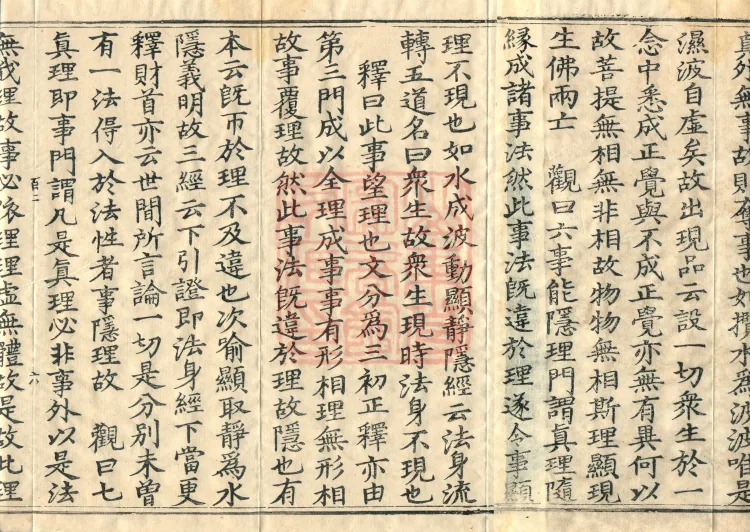 眞外無事故則奪事也如攬水爲波波唯是
濕波自虛矣故出現品云設一切衆生於一
念中悉成正覺與不成正覺亦無有異何以
故菩提無相無非相故物物無相斯理顯現
生佛兩亡　觀曰六事能隱理門謂眞理隨
緣成諸事法然此事法旣違於理遂令事顯
理不現也如水成波動顯靜隱經云法身流
轉五道名曰衆生故衆生現時法身不現也
釋曰此事望理也文分爲三初正釋亦由
第三門成以全理成事事有形相理無形相
故事覆理故然此事法旣違於理故隱也有
本云旣帀於理不及違也次喻顯取靜爲水
隱義明故三經云下引證即法身經下當更
釋財首亦云世間所言論一切是分別未曾
有一法得入於法性者事隱理故　觀曰七
眞理即事門謂凡是眞理必非事外以是法
百二　六
無我理故事必依理理虛無體故是故此理